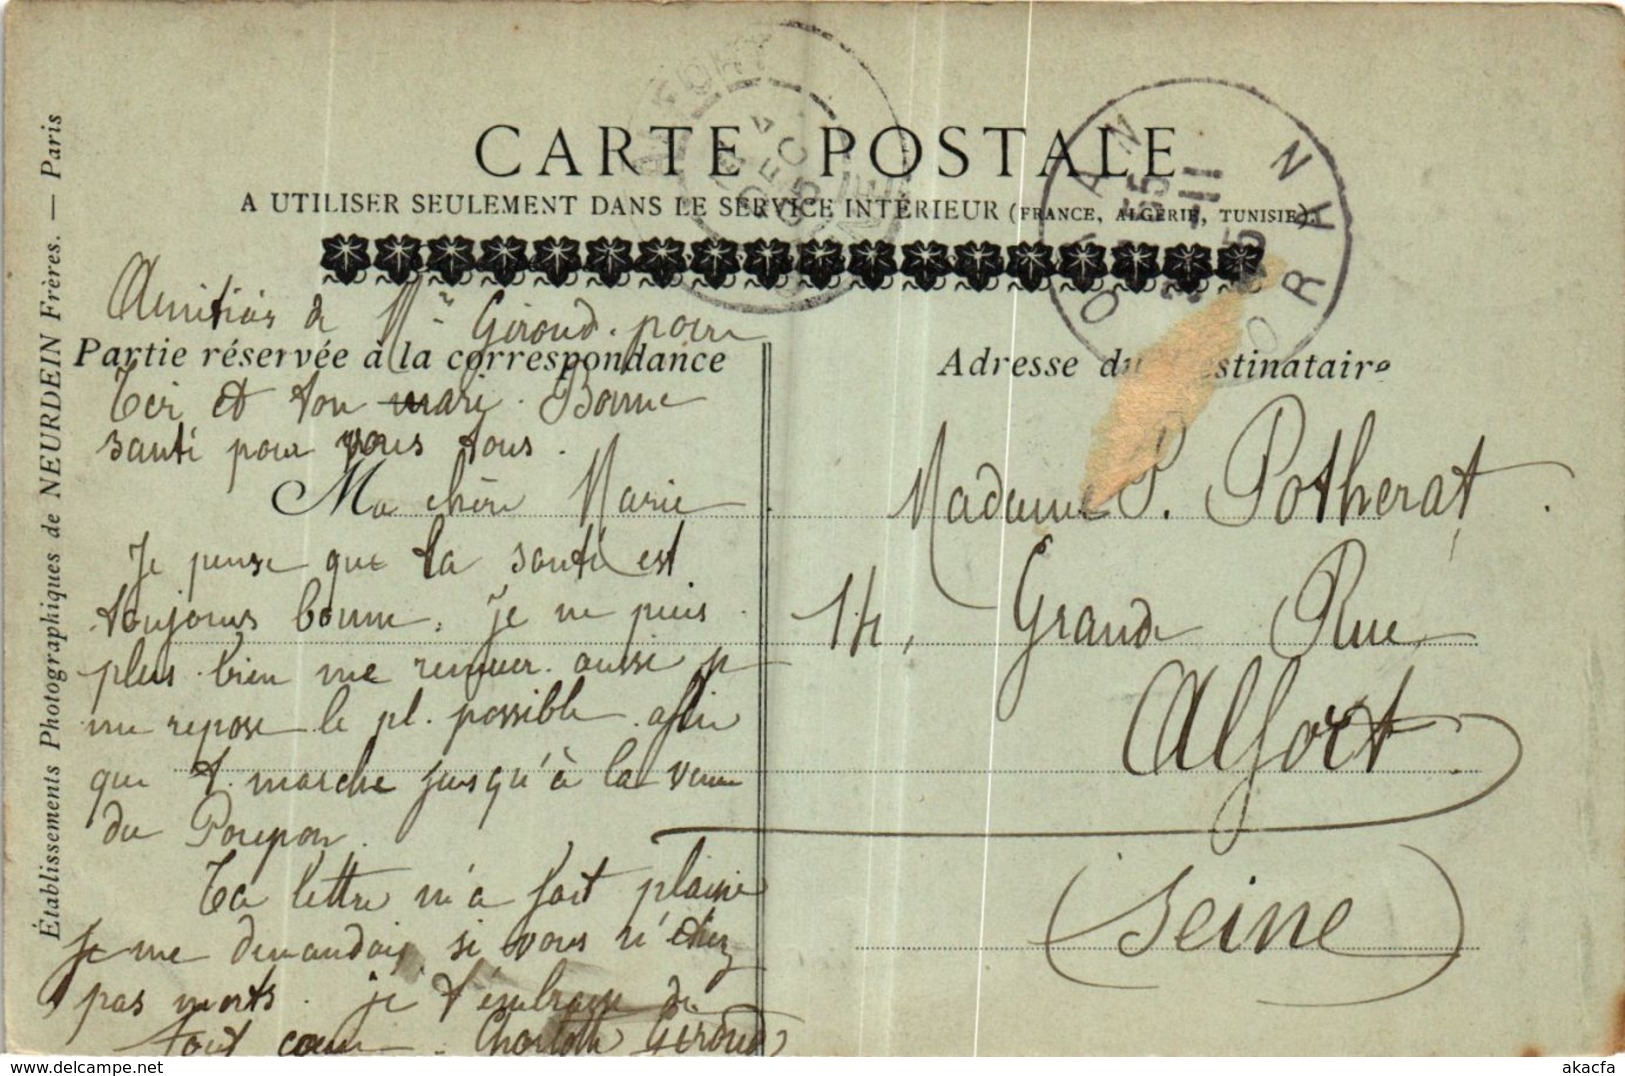 CARTE POSTALE
A UTILISER SEULEMENT DANS LE SERVICE INTÉRIEUR (FRANCE, ALGÉRIE, TUNISIE).
Établissements Photographiques de NEURDEIN Frères. — Paris
ORAN
ORAN
DEC
Amitiés de Mr Giroud. pour
Partie réservée à la correspondance
Toi et ton mari. Bonne
santé pour vous tous.
Ma chère Marie
Je pense que ta santé est
toujours bonne, je ne puis
plus bien me remuer. aussi je
me repose le pl. possible afin
que t. marche jusqu'à la venue
du Poupon.
Ta lettre m'a fait plaisir
Je me demandais si vous n'étiez
pas morts. je t'embrasse de
tout cœur. Charlotte Giroud
Adresse du destinataire
Madame P. Potherat.
14, Grande Rue
Alfort
(Seine)
akacfa